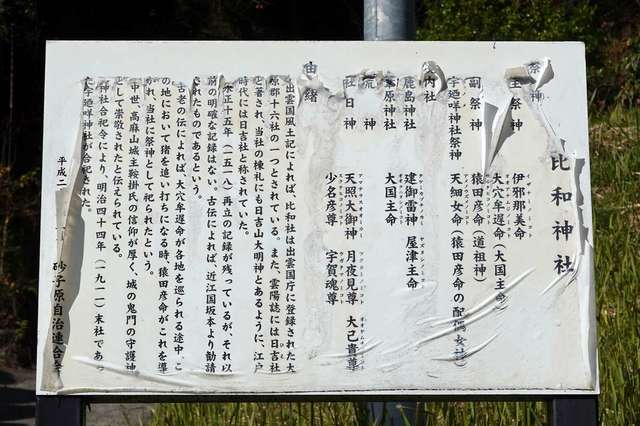 比和神社
祭神
主祭神 伊邪那美命
大穴牟遅命(大国主命)
副祭神 猿田彦命(道祖神)
宇廼咩神社祭神 天細女命(猿田彦命の配偶女神)
内社
鹿島神社 建御雷神 屋津主命
原神社 大国主命
荒神
社日神 天照大御神 月夜見尊 大己貴尊
少名彦尊 宇賀魂尊
由緒
出雲国風土記によれば、比和社は出雲国庁に登録された大
原郡十六社の一つとされている。また、雲陽誌には日吉社
と著され、当社の棟札にも日吉山大明神とあるように、江戸
時代には日吉社と称されていた。
永正十五年(一五一八)再立の記録が残っているが、それ以
前の明確な記録はない。古伝によれば、近江国坂本より勧請
されたものであるという。
古老の伝によれば、大穴牟遅命が各地を巡られる途中、こ
の地において猪を追い打ちになる時、猿田彦命がこれを導
かれ、当社に祭神として祀られたという。
中世、高麻山城主鞍掛氏の信仰が厚く、城の鬼門の守護神
として崇敬されたと伝えられている。
神社合祀令により、明治四十四年(一九一一)末社であっ
た宇廼咩神社が合祀された。
平成二
砂子原自治連合会